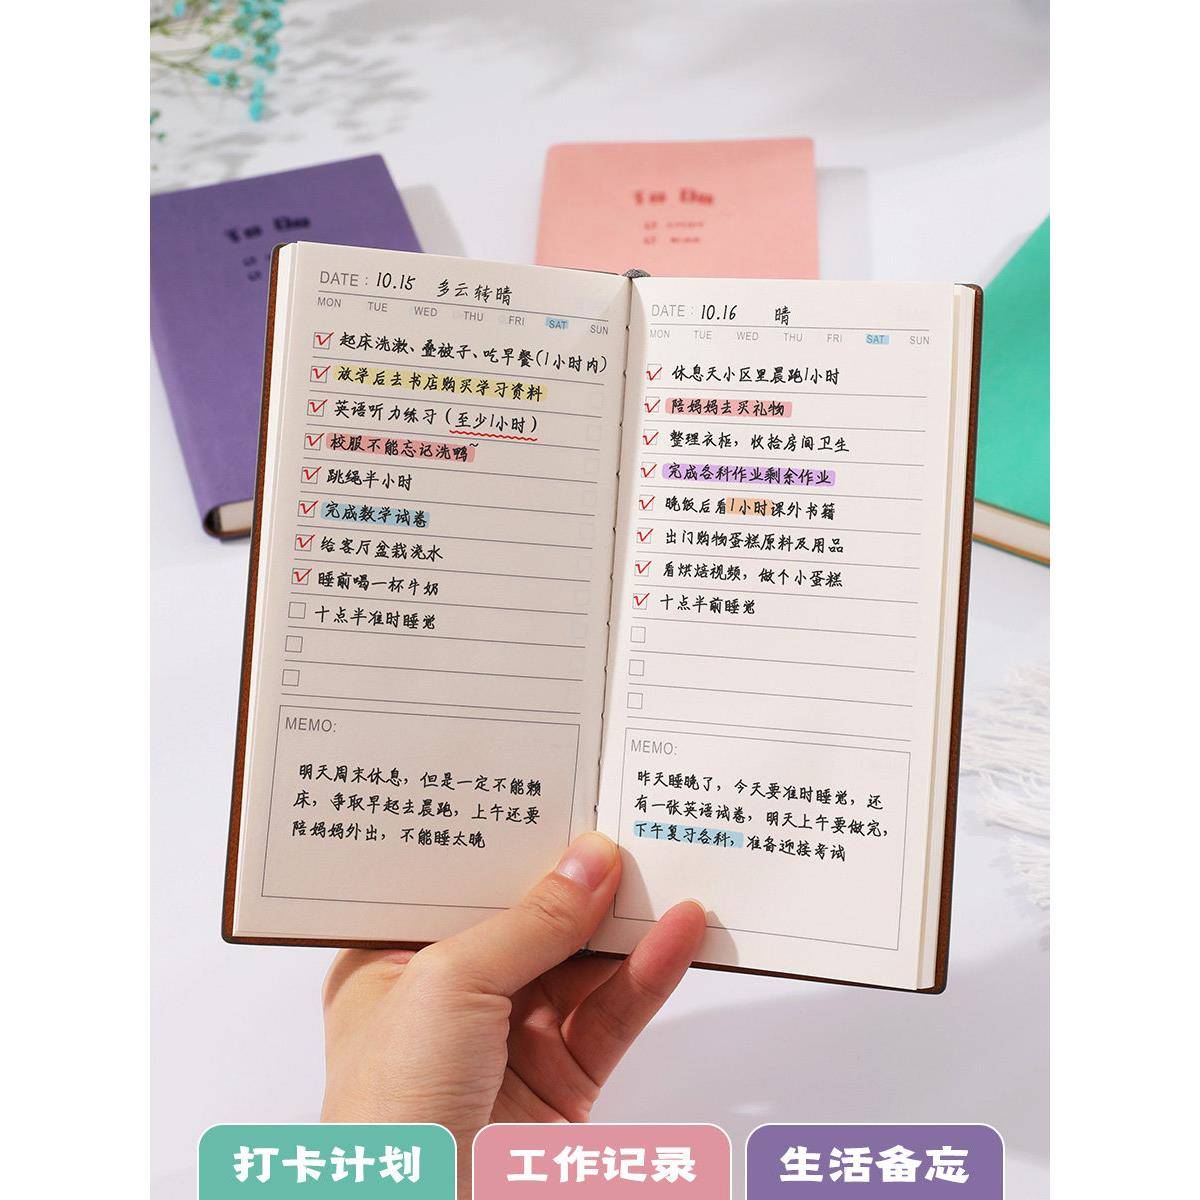 To Do
To Do
DATE: 10.15 多云转晴
MON TUE WED THU FRI SAT SUN
起床洗漱、叠被子、吃早餐(1小时内)
放学后去书店购买学习资料
英语听力练习(至少1小时)
校服不能忘记洗鸭~
跳绳半小时
完成数学试卷
给客厅盆栽浇水
睡前喝一杯牛奶
十点半准时睡觉
MEMO:
明天周末休息，但是一定不能赖
床，争取早起去晨跑，上午还要
陪妈妈外出，不能睡太晚
DATE: 10.16 晴
MON TUE WED THU FRI SAT SUN
休息天小区里晨跑1小时
陪妈妈去买礼物
整理衣柜，收拾房间卫生
完成各科作业剩余作业
晚饭后看1小时课外书籍
出门购物蛋糕原料及用品
看烘焙视频，做个小蛋糕
十点半前睡觉
MEMO:
昨天睡晚了，今天要准时睡觉，还
有一张英语试卷，明天上午要做完，
下午复习各科，准备迎接考试
打卡计划
工作记录
生活备忘